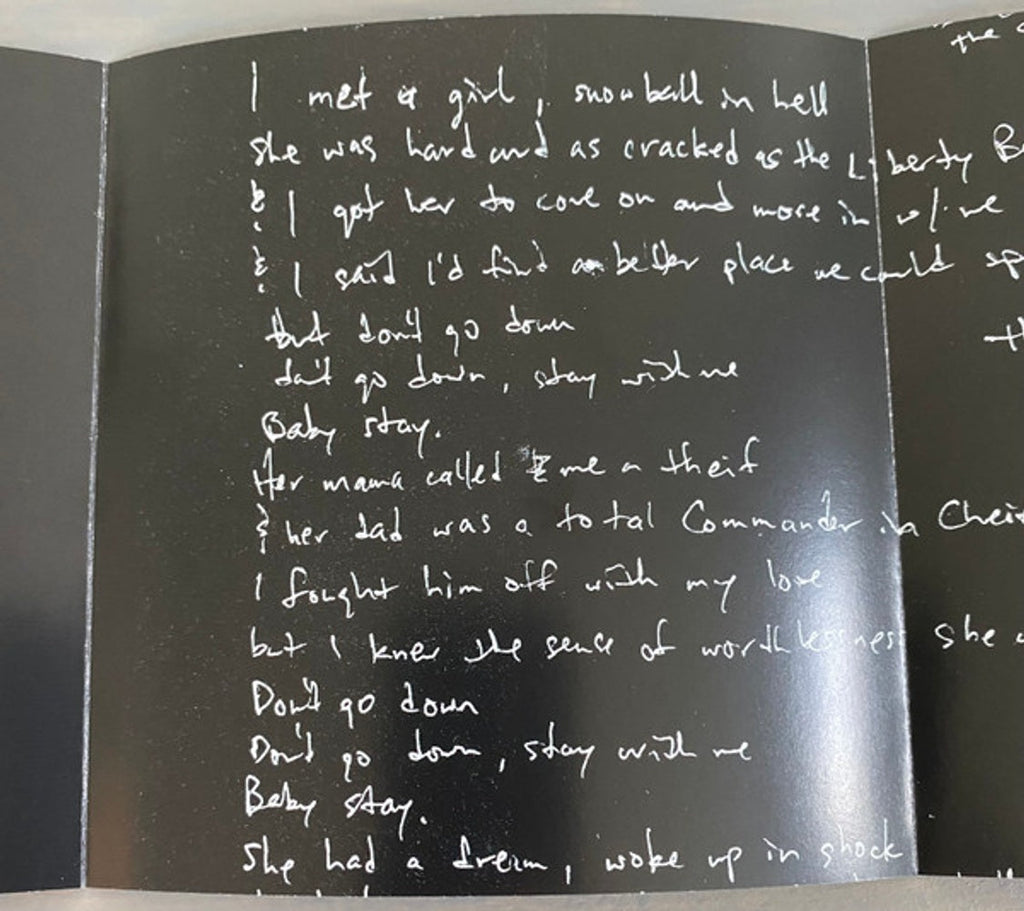 the
I met a girl, snowball in hell
she was hard and as cracked as the Liberty
& I got her to come on and move in w/ me
& I said I'd find a better place we could
but don't go down
don't go down, stay with me
Baby stay.
Her mama called me a theif
& her dad was a total Commander in
I fought him off with my love
but I knew the sense of worthlessness she
Don't go down
Don't go down, stay with me
Baby stay.
She had a dream, woke up in shock